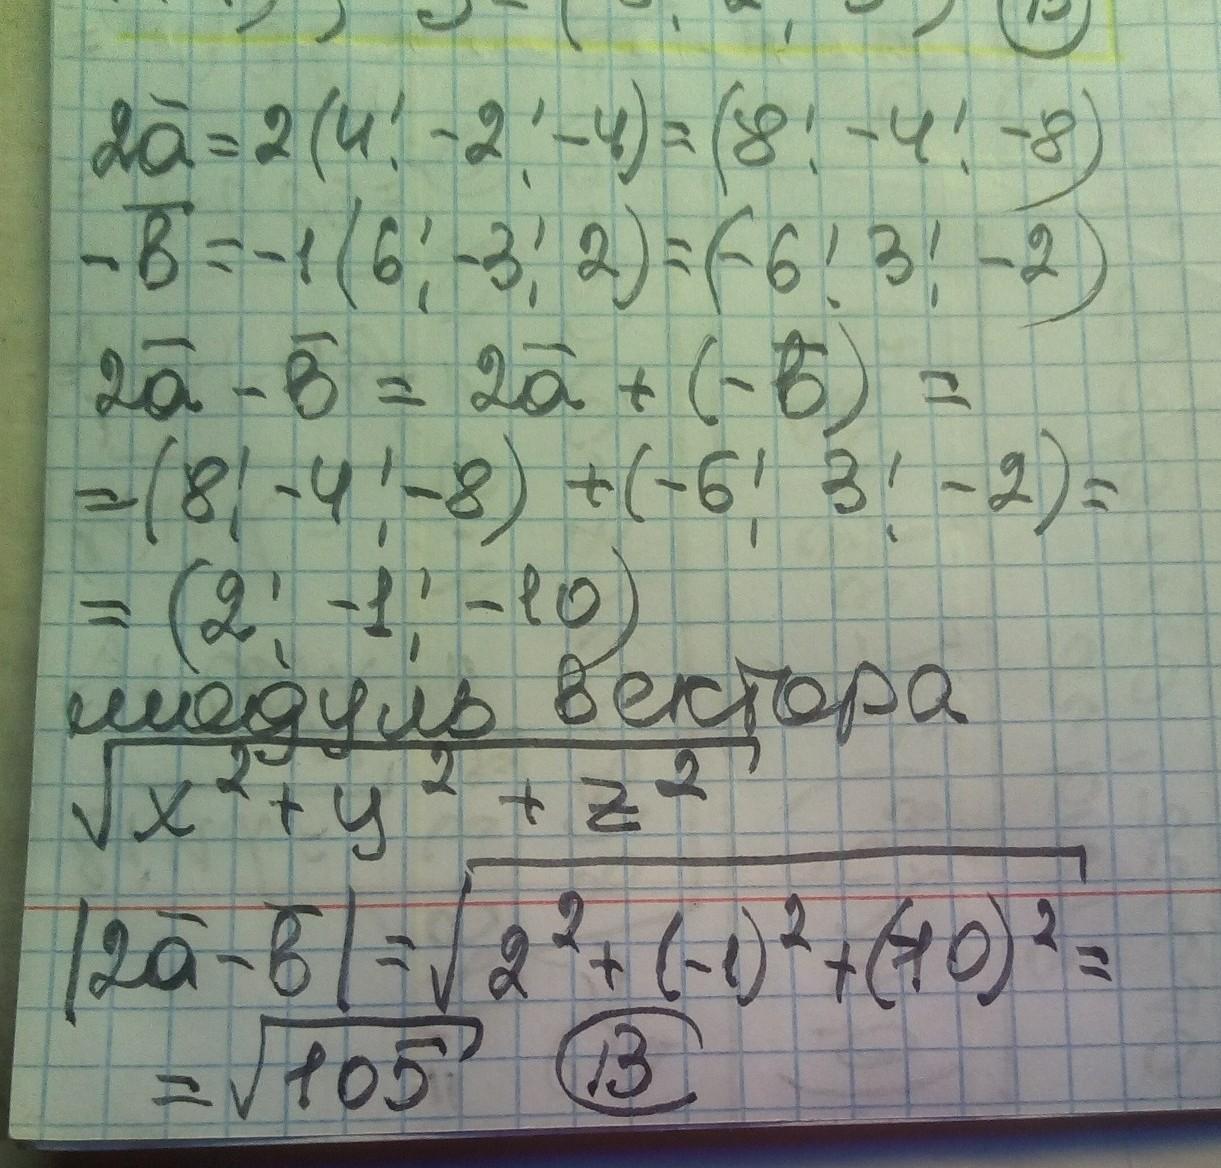 2a̅ = 2(4; -2; -4) = (8; -4; -8)
-b̅ = -1(6; -3; 2) = (-6; 3; -2)
2a̅ - b̅ = 2a̅ + (-b̅) =
= (8; -4; -8) + (-6; 3; -2) =
= (2; -1; -10)
модуль вектора
√x² + y² + z²
|2a̅ - b̅| = √2² + (-1)² + (-10)² =
= √105 В